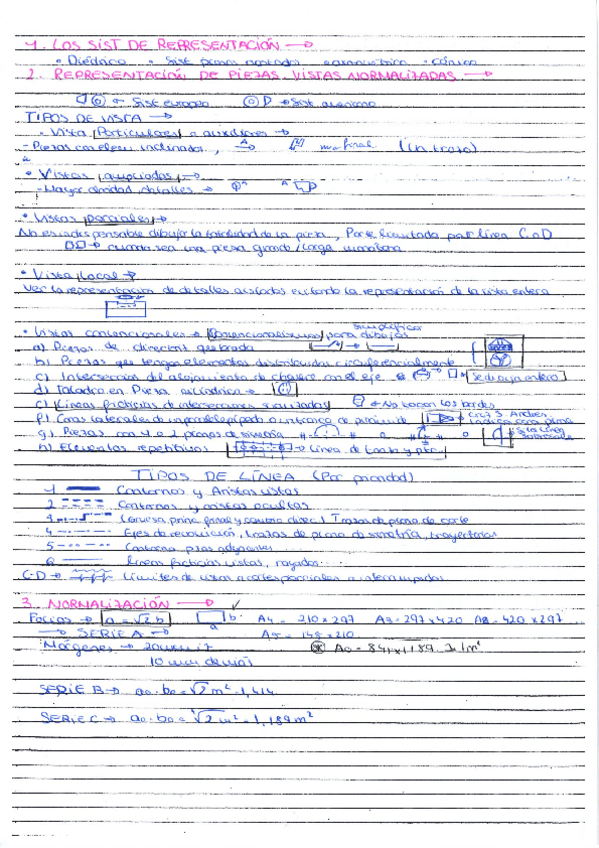 1. LOS SIST DE REPRESENTACIÓN →
• Diédrico • Sist planos acotados • axonométrico • cónico
2. REPRESENTACIÓN DE PIEZAS. VISTAS NORMALIZADAS →
→ Sist europeo → Sist americano
TIPOS DE VISTA →
• Vista Particulares o auxiliares →
- Piezas con elem inclinados, A →
• Vistas ampliadas →
- Mayor claridad detalles → A A
• Vistas parciales →
No es indispensable dibujar la totalidad de la pieza, Parte limitada por línea C o D
→ cuando sea una pieza grande/larga
• Vista local →
Ver la representación de detalles aislados evitando la representación de la vista entera
• Vistas convencionales → Convencionalismos para dibujos
simplificar
a) Piezas de quebrada
b) Piezas que tengan elementos distribuidos circunferencialmente
c) Intersección del alojamiento de chaveta con el eje → Se dibuja entero
d) Taladro en Pieza cilíndrica →
e) Líneas ficticias de intersecciones suavizadas → No tocan los bordes
f) Caras laterales de un paralelepípedo o un tronco de pirámide → Cruz S. Andrés
g) Piezas con 1 o 2 planos de simetría o o
h) Elementos repetitivos → Línea de
TIPOS DE LÍNEA (Por prioridad)
1 Contornos y Aristas vistas
2 Contornos y aristas ocultas
3 Trazas de plano de corte
4 Ejes de revolución, trazas de plano de simetría, trayectorias
5 Contorno pzas adyacentes
6 Líneas ficticias vistas, rayados...
C-D → Límites de vistas o cortes parciales o interrumpidas
3. NORMALIZACIÓN →
Folios → a = √2 b b A4 = 210 x 297 A3 = 297 x 420 A2 = 420 x 297
→ SERIE A → a A5 = 148 x 210
Márgenes → 20 mm izq A0 = 841 x 1189
10 mm demás
SERIE B → a0 · b0 = √2 m² = 1,414
SERIE C → a0 · b0 = ⁴√2 m² = 1,189 m²